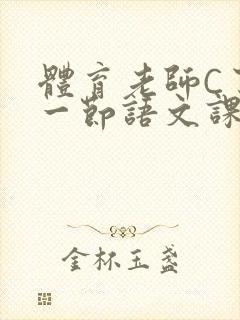 體育老師C
一節語文課
金杯玉盞